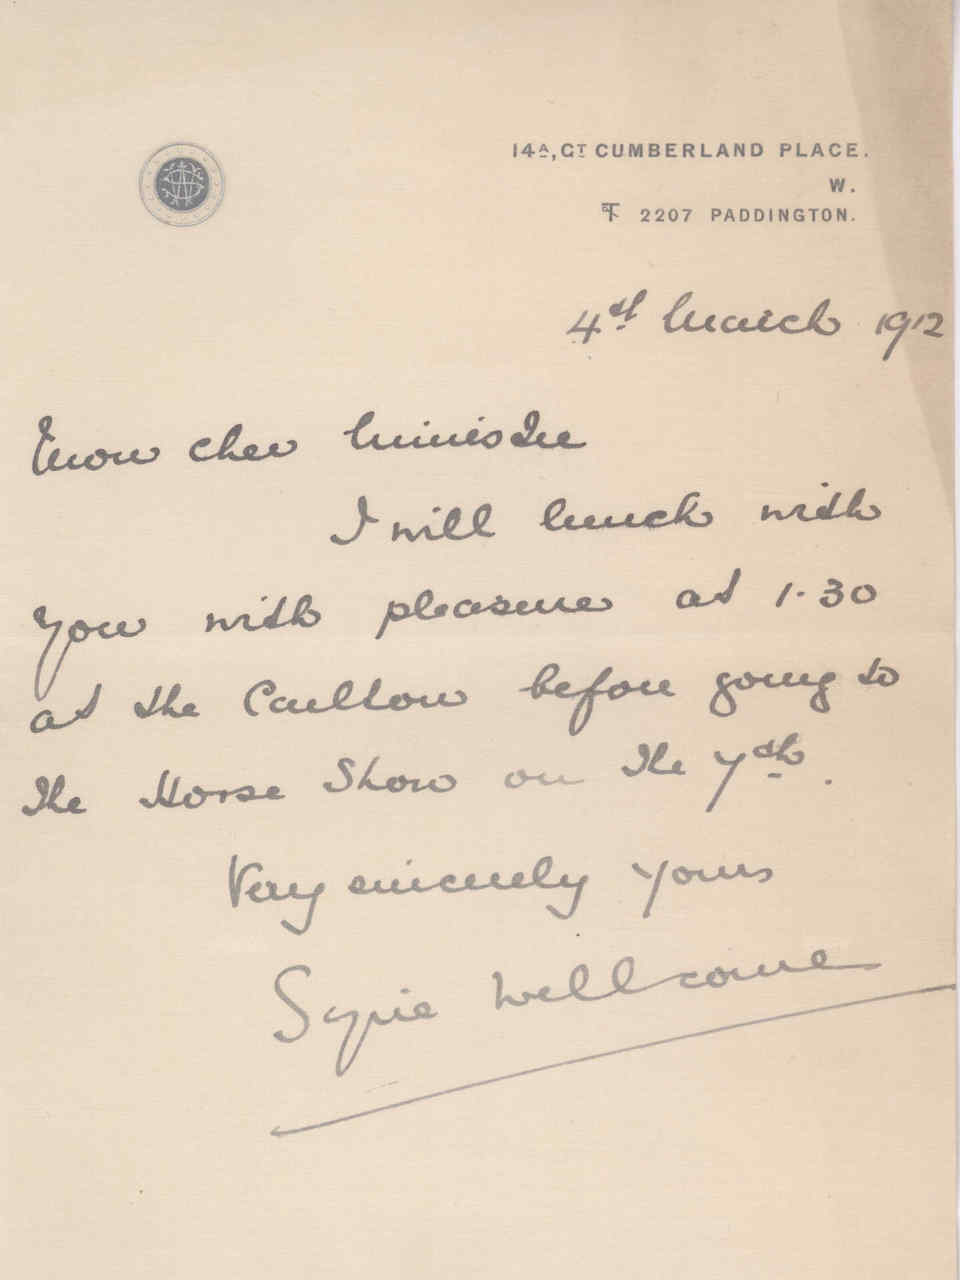 14A, GT CUMBERLAND PLACE.
W.
T 2207 PADDINGTON.
4th March 1912
Mon cher Ministre
I will lunch with
you with pleasure at 1.30
at the Carlton before going to
the Horse Show on the 7th.
Very sincerely yours
Syrie Wellcome